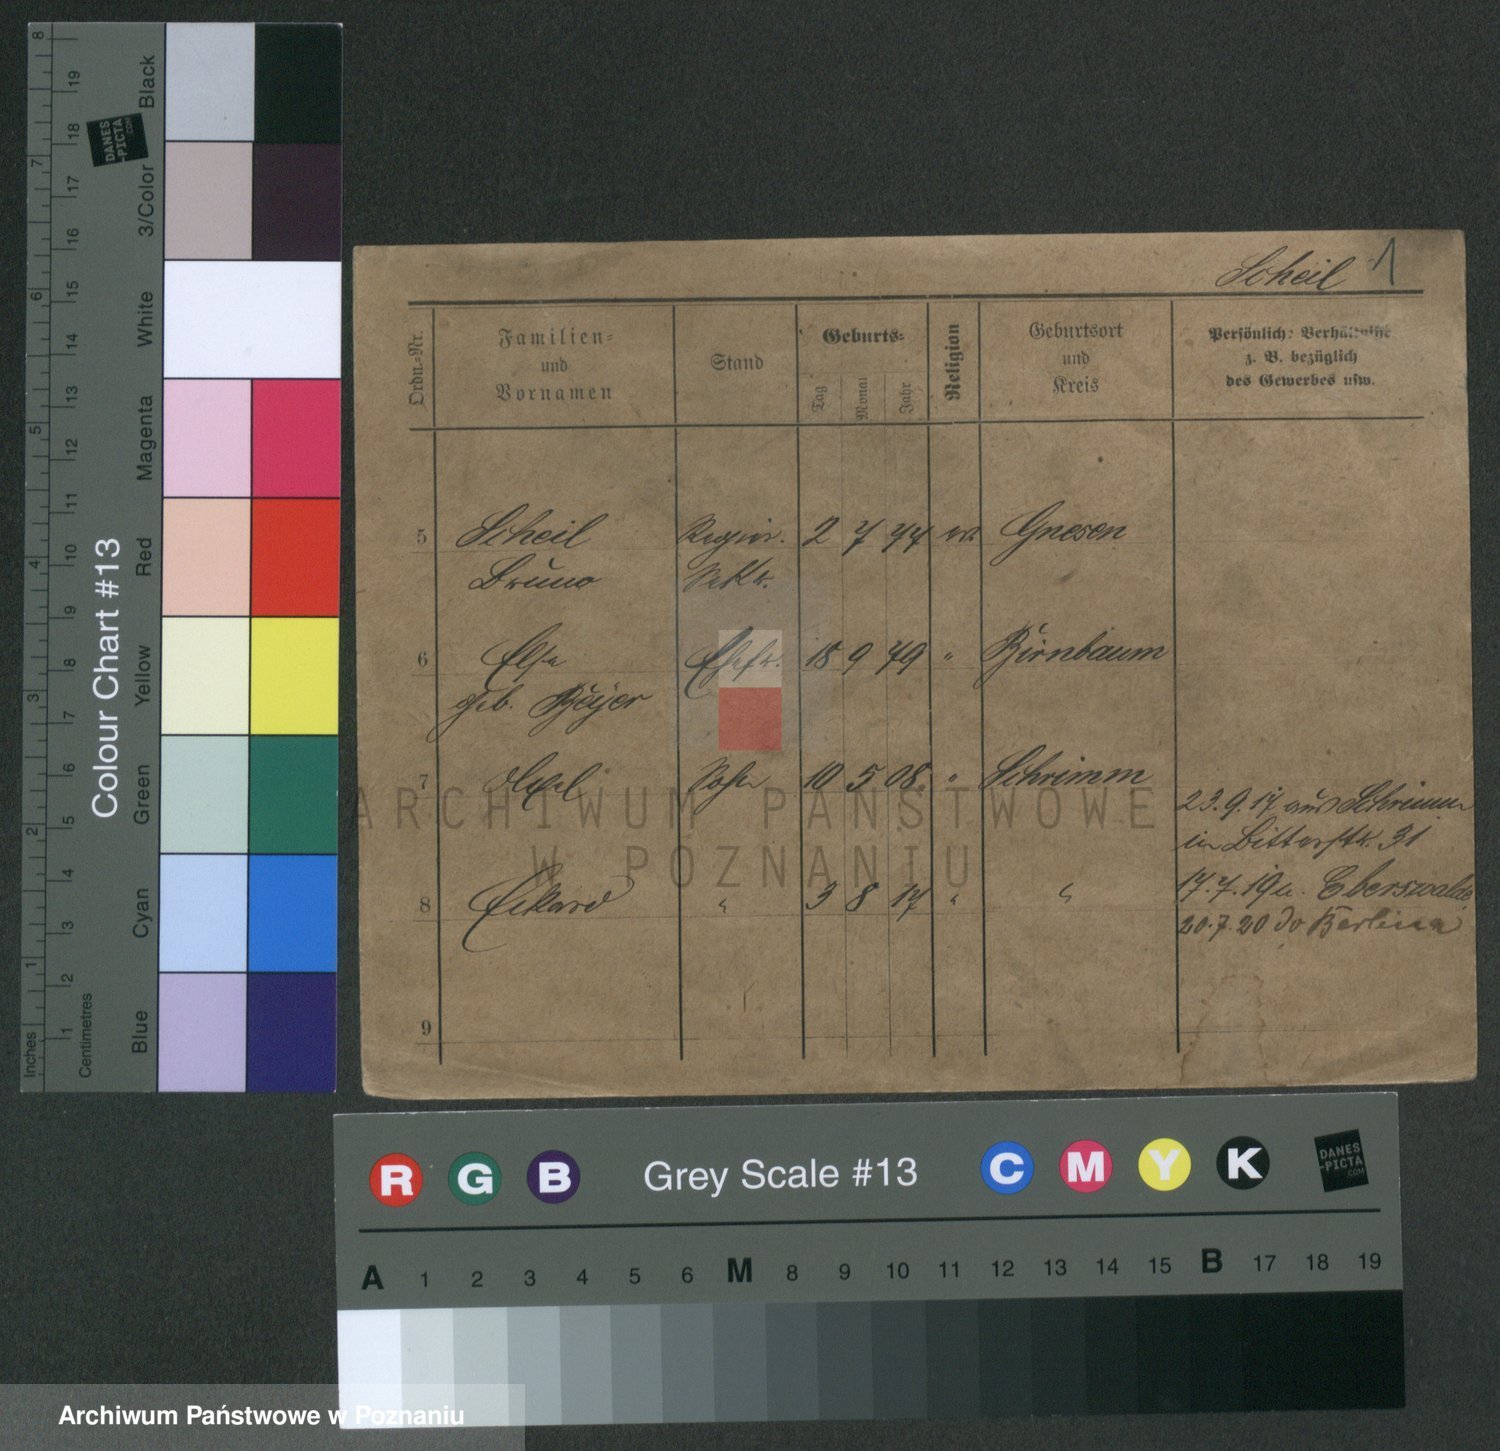 8 19 18 7 17 16 6 15 14 13 5 12 11 10 4 9 8 3 7 6 2 5 4 3 1 2 1
Inches
Centimetres
Colour Chart #13
DANES
-PICTA
.COM
Black
3/Color
White
Magenta
Red
Yellow
Green
Cyan
Blue
Scheil 1
Ordn.-Nr.
Familien-
und
Vornamen
Stand
Geburts-
Tag Monat Jahr
Religion
Geburtsort
und
Kreis
Persönlich. Verhältnisse
z. B. bezüglich
des Gewerbes usw.
5 Scheil 2 7 77 ev. Gnesen
Bruno Sektr.
6 Else Ehefr. 18 9 79 " Birnbaum
geb. Beijer
7 Axel Sohn 10 5 08. " Schrimm
23.9.17 aus Schrimm
in Bitterstr. 31
8 Eckard " 3 8 17 " "
17.7.19 n. Eberswalde
20.7.20 do Berlin
9
ARCHIWUM PAŃSTWOWE
W POZNANIU
R G B Grey Scale #13 C M Y K
DANES
-PICTA
.COM
A 1 2 3 4 5 6 M 8 9 10 11 12 13 14 15 B 17 18 19
Archiwum Państwowe w Poznaniu